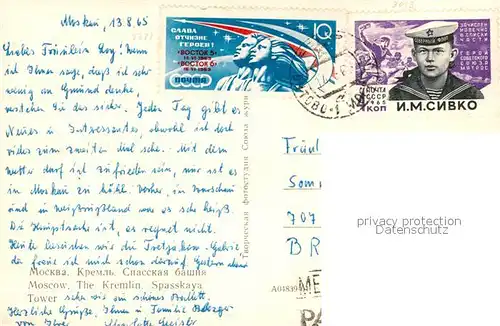 Moskau, 13.8.65
Liebes Fräulein Loy! Wenn
ich Ihnen sage, daß ich sehr
wenig an Gmünd denke,
verstehen Sie das sicher. Jeden Tag gibt es
Neues u. Interessantes, obwohl ich doch
vieles zum zweiten Mal sehe. Mit dem
Wetter darf ich zufrieden sein, nur ist es
in Moskau zu kühl. Vorher, in Warschau
und in Weißrußland war es sehr heiß.
Die Hauptsache ist, es regnet nicht.
Heute besuchen wir die Tretjakow-Galerie,
da freue ich mich schon darauf. Gestern abend
Москва. Кремль. Спасская башня
Moscow. The Kremlin. Spasskaya
Tower
sahen wir ein schönes Ballett.
Herzliche Grüße, Ihnen u. Familie
von Ihrer
Творческая фотостудия Союза журн
А04839
СЛАВА
ОТЧИЗНЕ
ГЕРОЕВ!
"ВОСТОК 5"
14-VI-1963
"ВОСТОК 6"
16-VI-1963
ПОЧТА
10
ПОЧТА
СССР
1965
4 КОП
СЕВЕРНЫЙ ФЛОТ
ЗАЧИСЛЕН
НАВЕЧНО
ГЕРОЙ
СОВЕТСКОГО
СОЮЗА
И.М.СИВКО
Fräul
Som
707
BR
privacy protection
Datenschutz